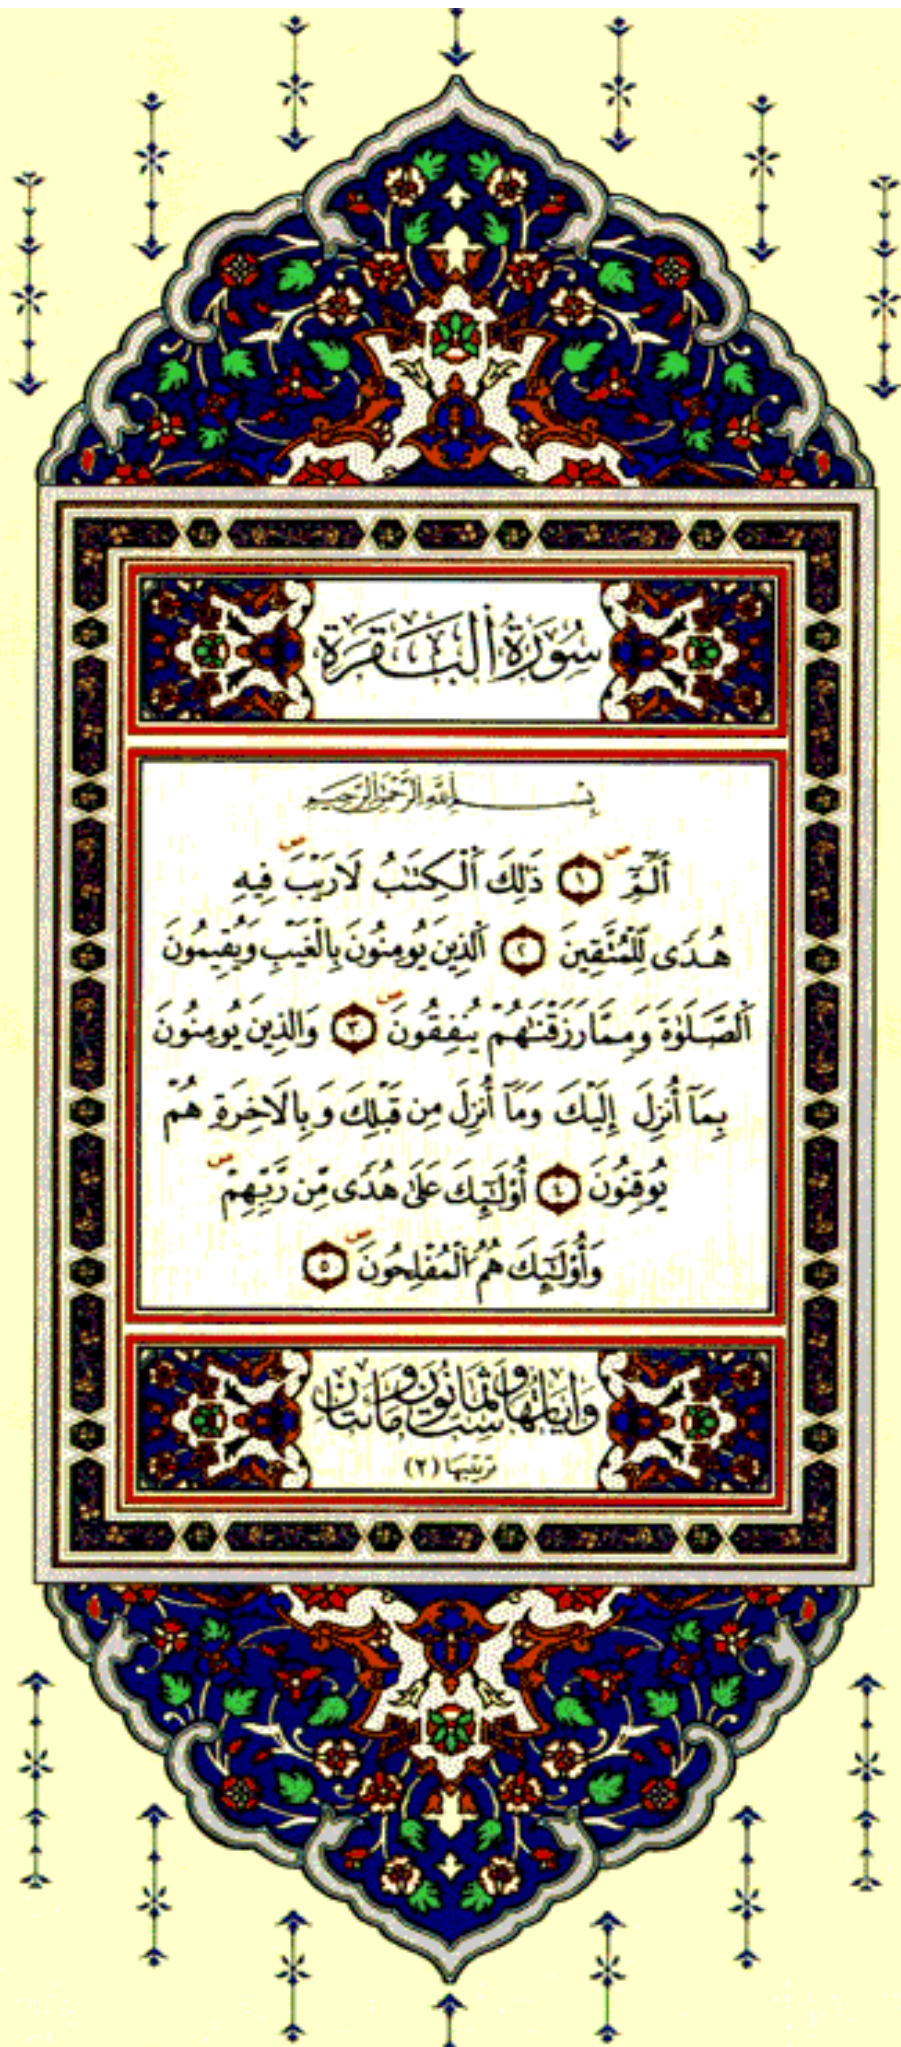 سُورَةُ ٱلْبَقَرَةِ
بِسْمِ اللَّهِ الرَّحْمَٰنِ الرَّحِيمِ
أَلَٓمِّٓۖ ١ ذَٰلِكَ ٱلْكِتَٰبُ لَا رَيْبَۖ فِيهِ
هُدٗى لِّلْمُتَّقِينَ ٢ ٱلذِينَ يُومِنُونَ بِالْغَيْبِ وَيُقِيمُونَ
ٱلصَّلَوٰةَ وَمِمَّا رَزَقْنَٰهُمْ يُنفِقُونَۖ ٣ وَالذِينَ يُومِنُونَ
بِمَآ أُنزِلَ إِلَيْكَ وَمَآ أُنزِلَ مِن قَبْلِكَ وَبِالَاخِرَةِ هُمْ
يُوقِنُونَ ٤ أُوْلَٰٓئِكَ عَلَىٰ هُدٗى مِّن رَّبِّهِمْۖ
وَأُوْلَٰٓئِكَ هُمُ ٱلْمُفْلِحُونَۖ ٥
وَآيَاتُهَا سِتٌّ وَثَمَانُونَ وَمِائَتَانِ
ترتيبها (٢)